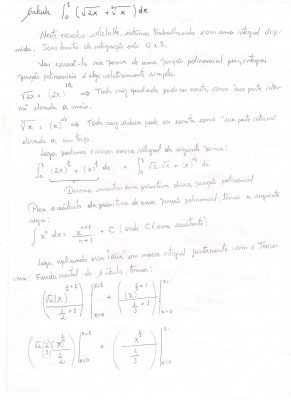 Calcule ∫₀⁸ (√2x + ∛x) dx
Neste exercício Michelle, estamos trabalhando com uma integral
Seus limites de integração são 0 a 8.
Vou escrevê-la na forma de uma função polinomial pois, integrar
função polinomial é algo relativamente simples.
√2x = (2x)^1/2 ⇒ Toda raiz quadrada pode ser escrita como "sua parte
" elevada a meio.
∛x = (x)^1/3 ⇒ Toda raiz cúbica pode ser escrita como "sua parte
elevada a um terço.
Logo, podemos escrever nossa integral da seguinte forma:
∫₀⁸ (2x)^1/2 + (x)^1/3 dx = ∫₀⁸ √2·√x + (x)^1/3 dx
Devemos encontrar uma primitiva dessa função polinomial
Para o cálculo da primitiva de uma função polinomial, temos a seguinte
regra:
∫ xⁿ dx = x^(n+1)/(n+1) + C (onde C é uma constante)
Logo, aplicando essa "idéia" em nossa integral juntamente com o Teore-
ma Fundamental do Cálculo, temos:
(√2 (x)^(1/2+1) / (1/2+1)) |x=8 x=0 + ((x)^(1/3+1) / (1/3+1)) |x=8 x=0